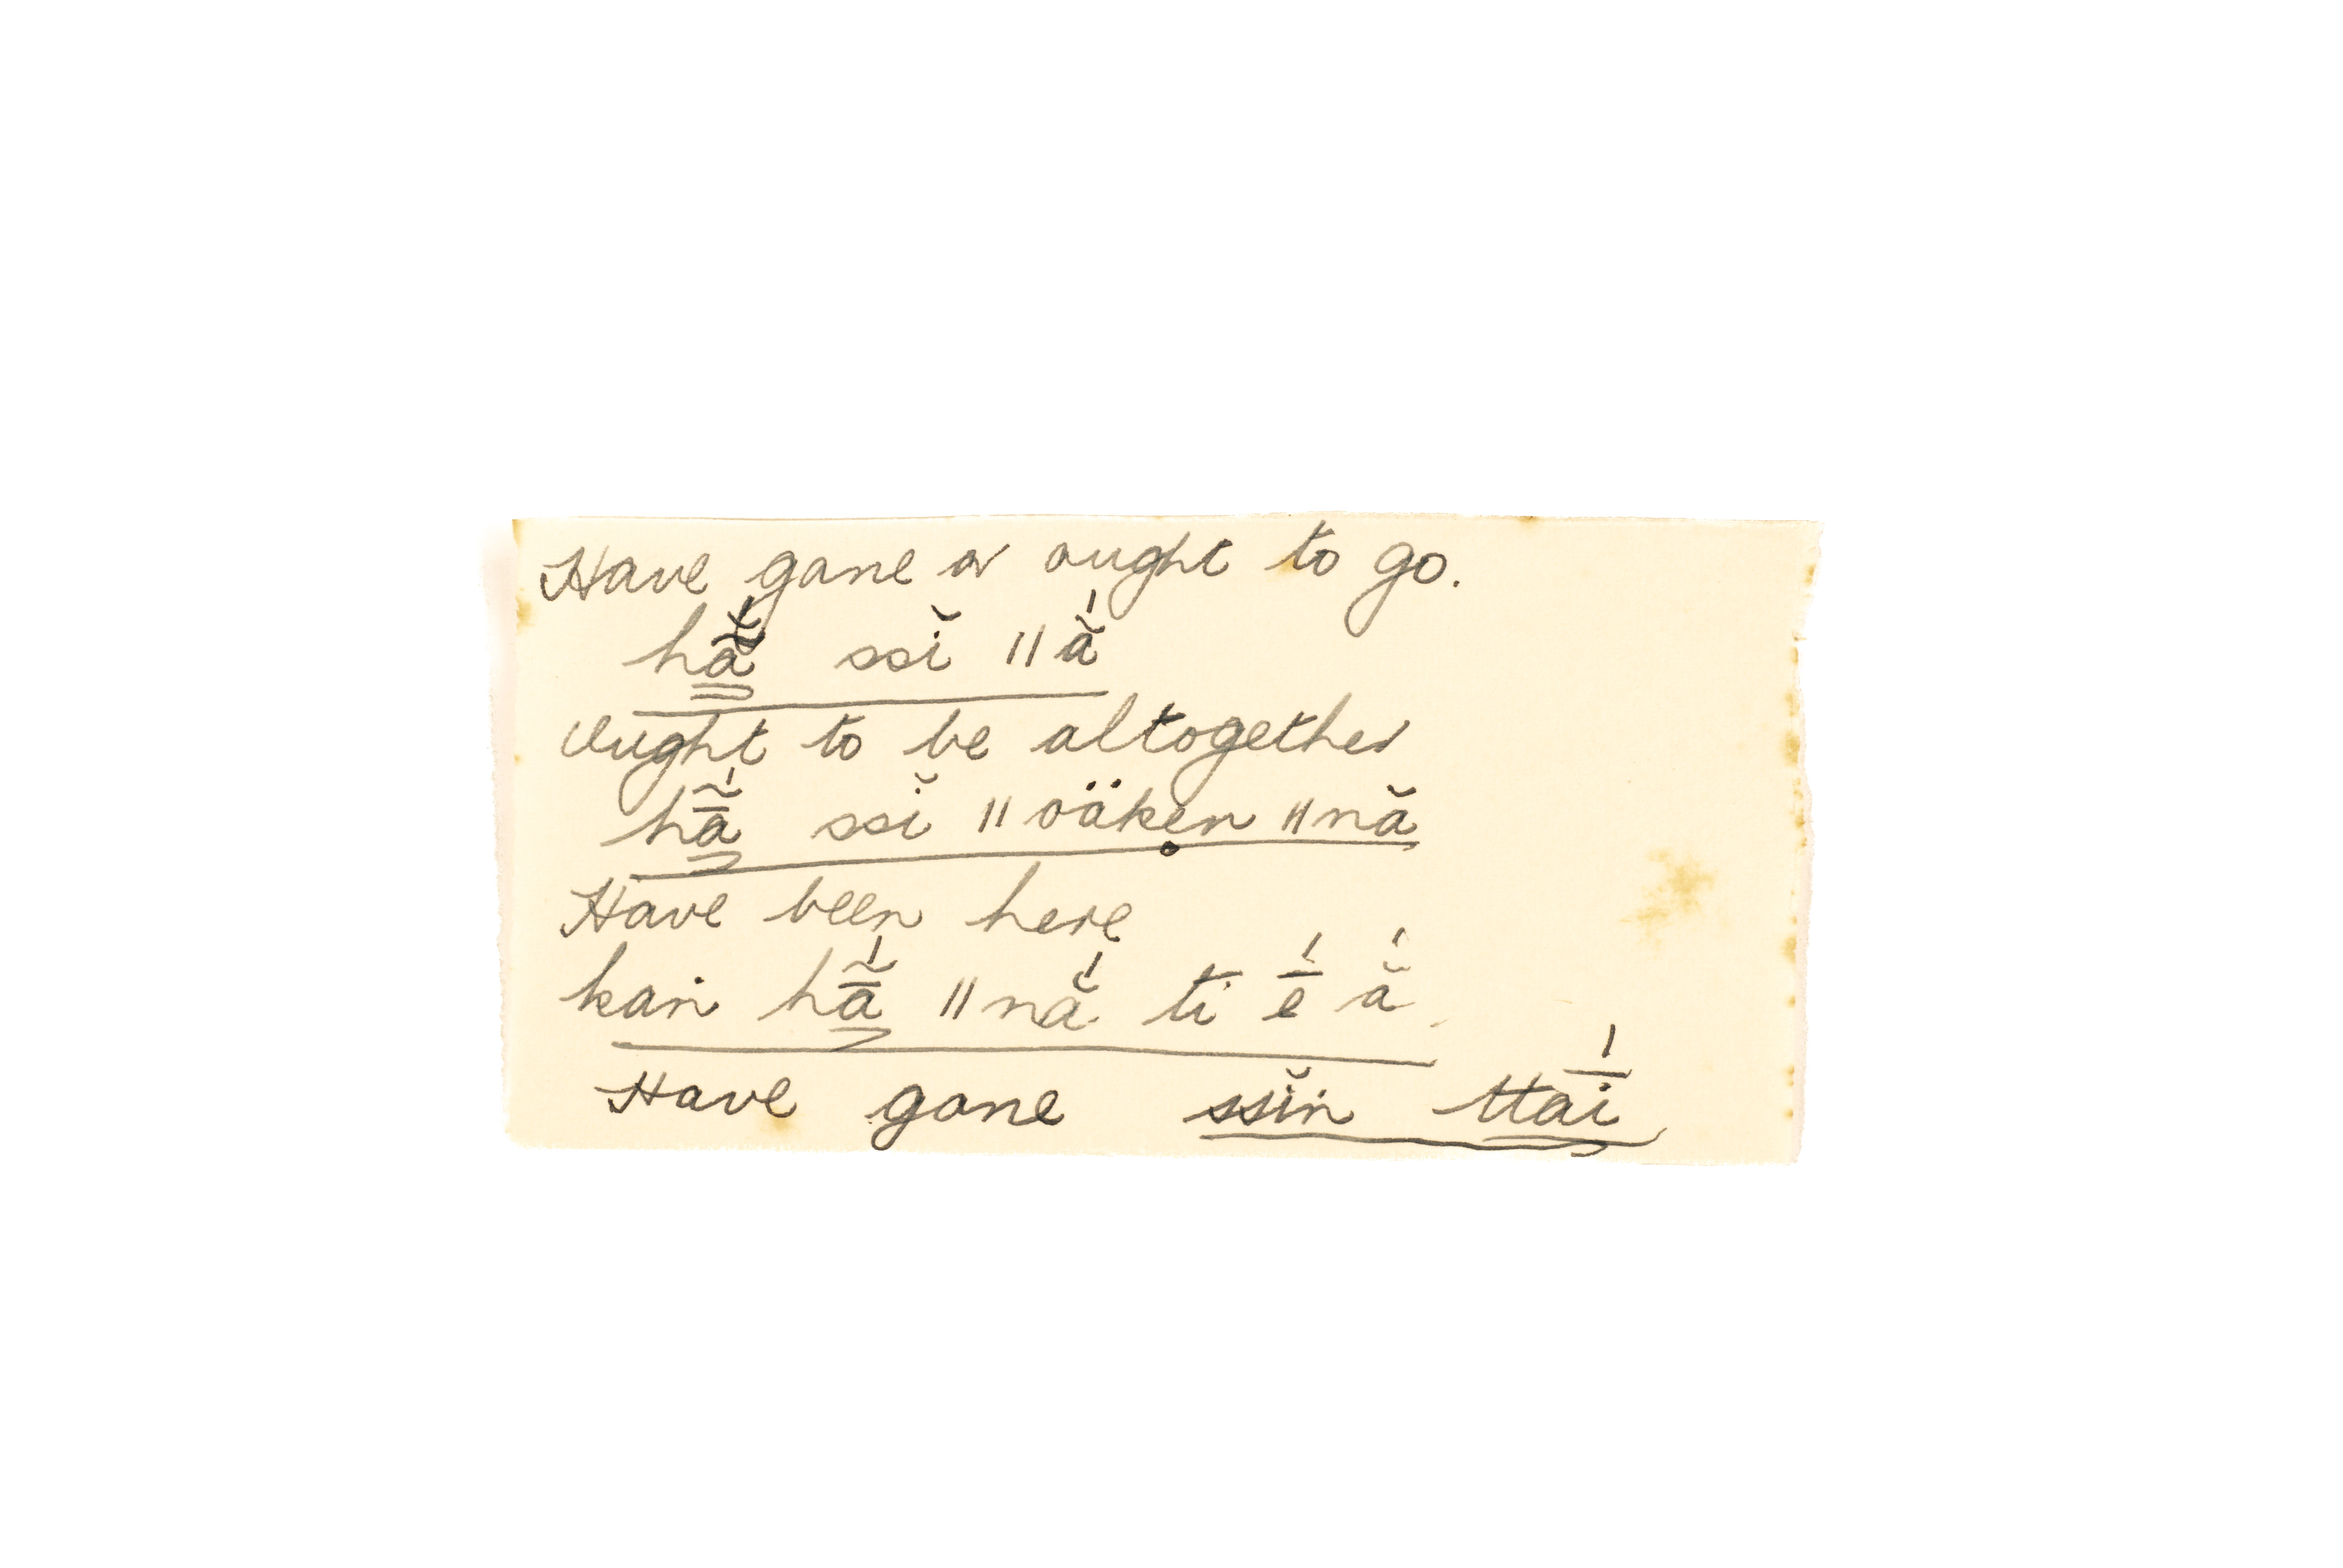 Have gone or ought to go.
hã̱́ ssĭ ǁắ
Ought to be altogether
hã̱̄́ ssĭ ǁoäken ǁnă
Have been here
kaṅ hã̱̄́ ǁnắ ti ḗ ắ
Have gone ssĭṅ ttaī́